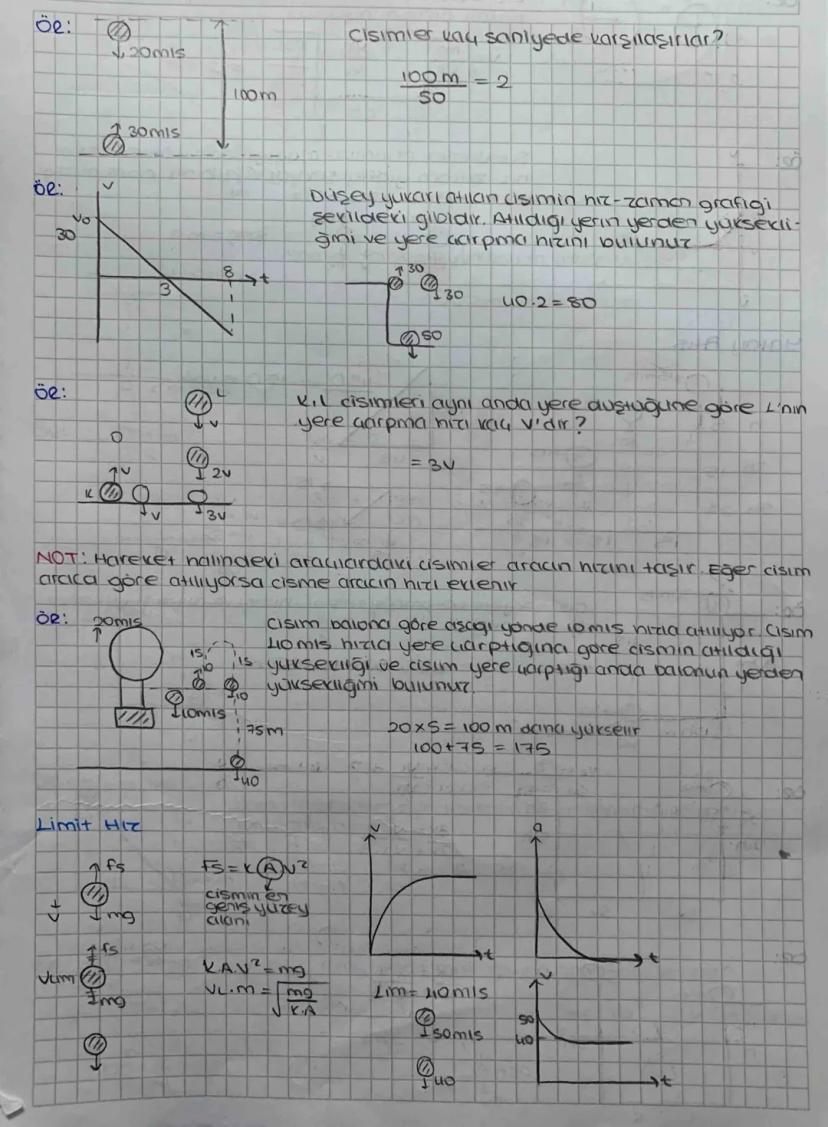 ÖR:
20m/s
100m
30m/s
Cisimler kaç saniyede karşılaşırlar?
100m
50
= 2
ÖR:
v
v₀
30
3
8
t
Düşey yukarı atılan cisimin hız-zaman grafiği
şekildeki gibidir. Atıldığı yerin yerden yüksekli-
ğini ve yere çarpma hızını bulunuz
30
30
50
40.2=80
ÖR:
L
v
2v
K
v
v
3v
K,L cisimleri aynı anda yere düştüğüne göre L'nin
yere çarpma hızı kaç v'dir?
= 3v
NOT: Hareket halindeki araçlardaki cisimler aracın hızını taşır. Eğer cisim
araca göre atılıyorsa cisme aracın hızı eklenir
ÖR:
20m/s
15
10
15
10
10m/s
75m
40
Cisim balona göre aşağı yönde 10m/s hızla atılıyor. Cisim
40m/s hızla yere çarptığına göre cismin atıldığı
yüksekliği ve cisim yere çarptığı anda balonun yerden
yüksekliğini bulunuz.
20x5=100m daha yükselir
100+75 = 175
Limit Hız
fs
v
mg
fs
vLim
mg
Fs = K A v²
cismin en
geniş yüzey
alanı
K.A.v² = mg
vLim = √mg
K.A
v
t
a
t
Lim= 40m/s
50m/s
40
v
50
40
t